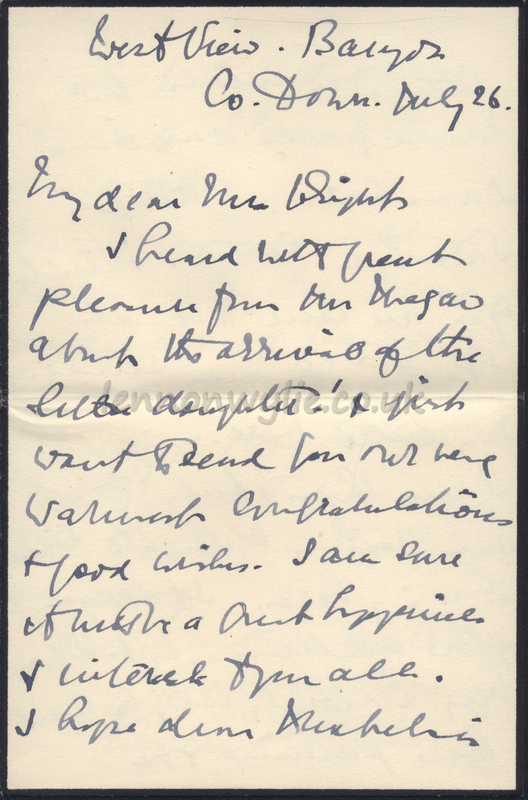 West View. Bangor
Co. Down. July 26.
My dear Mrs Wright
I heard with great
pleasure from Mrs
about the arrival of the
little daughter! & just
want to send you our very
warmest congratulations
& good wishes. I am sure
it must be a great happiness
& interest to you all.
I hope dear is
lennonwylie.co.uk